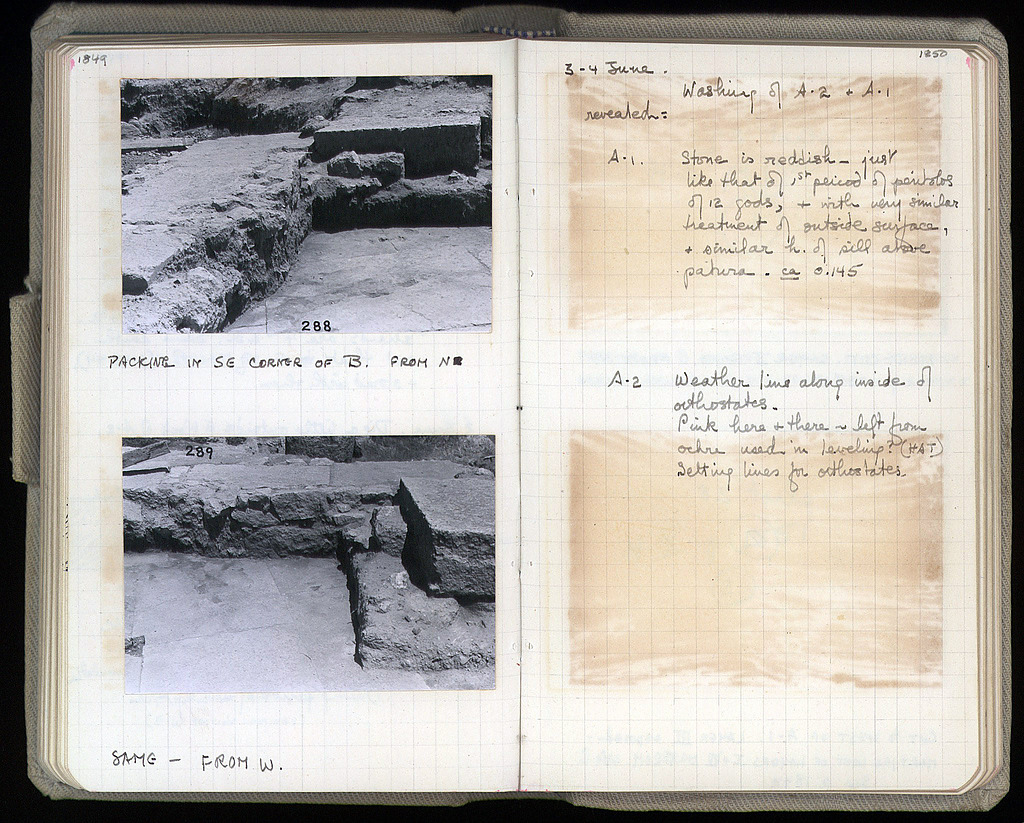 1849
288
PACKING IN SE CORNER OF B. FROM N
289
SAME – FROM W.
1850
3-4 June.
Washing of A.2 + A.1
revealed:
A.1. Stone is reddish – just
like that of 1st period of peribolos
of 12 gods, + with very similar
treatment of outside surface,
+ similar h. of sill above
patura. ca 0.145
A.2 Weather line along inside of
orthostates.
Pink here + there – left from
ochre used in leveling? (HAT)
Setting lines for orthostates.